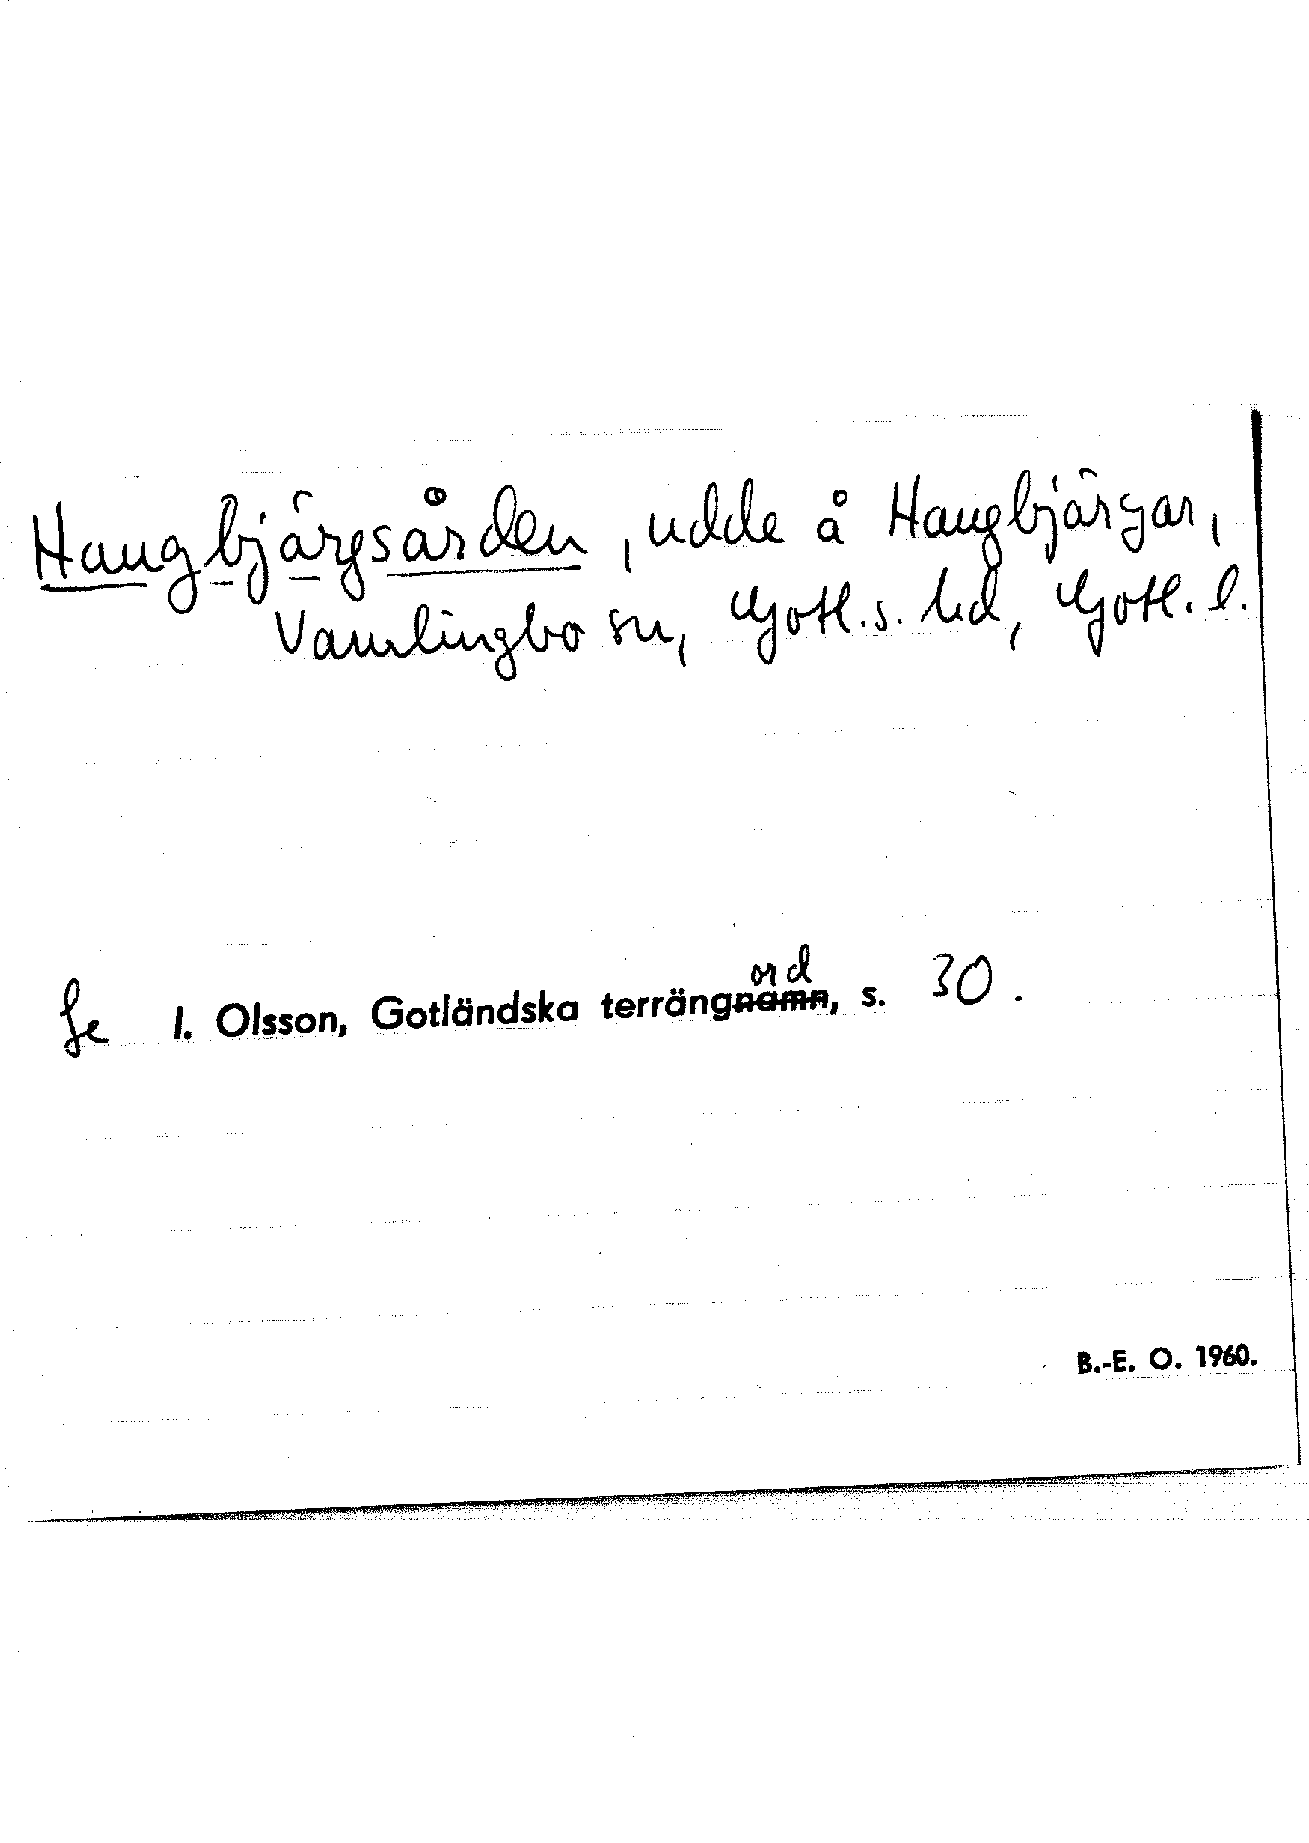 Haugbjärgsården, udde å Haugbjärgar,
Vamlingbo sn, Gotl.s. hd, Gotl. l.
ord
Se I. Olsson, Gotländska terrängnamn, s. 30.
B.-E. O. 1960.